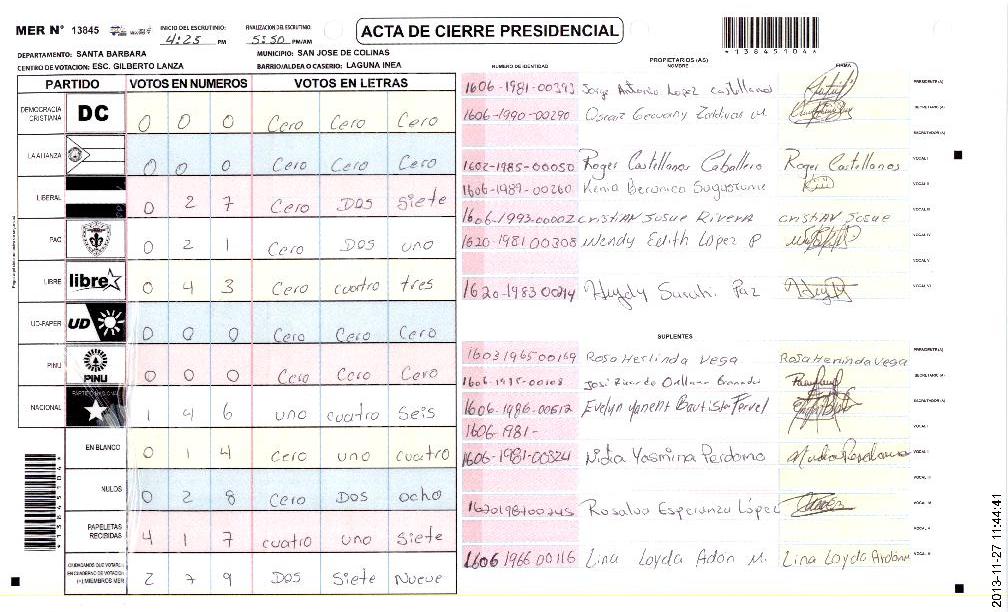 MER N° 13845 INICIO DEL ESCRUTINIO: 4:25 PM FINALIZACION DEL ESCRUTINIO: 5:50 PM/AM
ACTA DE CIERRE PRESIDENCIAL
*13845104*
DEPARTAMENTO: SANTA BARBARA MUNICIPIO: SAN JOSE DE COLINAS
CENTRO DE VOTACION: ESC. GILBERTO LANZA BARRIO/ALDEA O CASERIO: LAGUNA INEA
PARTIDO VOTOS EN NUMEROS VOTOS EN LETRAS
DEMOCRACIA CRISTIANA DC 0 0 0 Cero Cero Cero
LA ALIANZA 0 0 0 Cero Cero Cero
LIBERAL 0 2 7 Cero Dos Siete
PAC 0 2 1 Cero Dos uno
LIBRE libre 0 4 3 Cero cuatro tres
UD-FAPER UD 0 0 0 Cero Cero Cero
PINU PINU 0 0 0 Cero Cero Cero
NACIONAL 1 4 6 uno cuatro Seis
EN BLANCO 0 1 4 cero uno cuatro
NULOS 0 2 8 Cero Dos ocho
PAPELETAS RECIBIDAS 4 1 7 cuatro uno Siete
CIUDADANOS QUE VOTARON EN CUADERNO DE VOTACION (+) MIEMBROS MER 2 7 9 Dos Siete Nueve
*13845104*
PROPIETARIOS (AS)
NUMERO DE IDENTIDAD NOMBRE FIRMA
1606-1981-00393 Jorge Antonio Lopez castellanos PRESIDENTE (A)
1606-1990-00290 Oscar Geovany Zaldivar M. SECRETARIO (A)
ESCRUTADOR (A)
1602-1985-00050 Roger Castellanos Caballero Roger Castellanos VOCAL I
1606-1989-00260 Kenia Beronica VOCAL II
1606-1993-00002 cristian Josue Rivera cristian Josue VOCAL III
1620-1981 00308 Wendy Edith Lopez P VOCAL IV
VOCAL V
1620-1983 00194 Heydy Sarahi Paz VOCAL VI
SUPLENTES
1603 1965 00169 Rosa Herlinda Vega Rosa Herlinda Vega PRESIDENTE (A)
José Ricardo Orellana SECRETARIO (A)
1606-1986-00512 Evelyn Yanent Bautista ESCRUTADOR (A)
1606-1981- VOCAL I
1606-1981-00324 Nidia Yasmina Perdomo VOCAL II
VOCAL III
Rosalva Esperanza López VOCAL IV
VOCAL V
1606 1966 00116 Lina Loyda Adon M. Lina Loyda VOCAL VI
2013-11-27 11:44:41